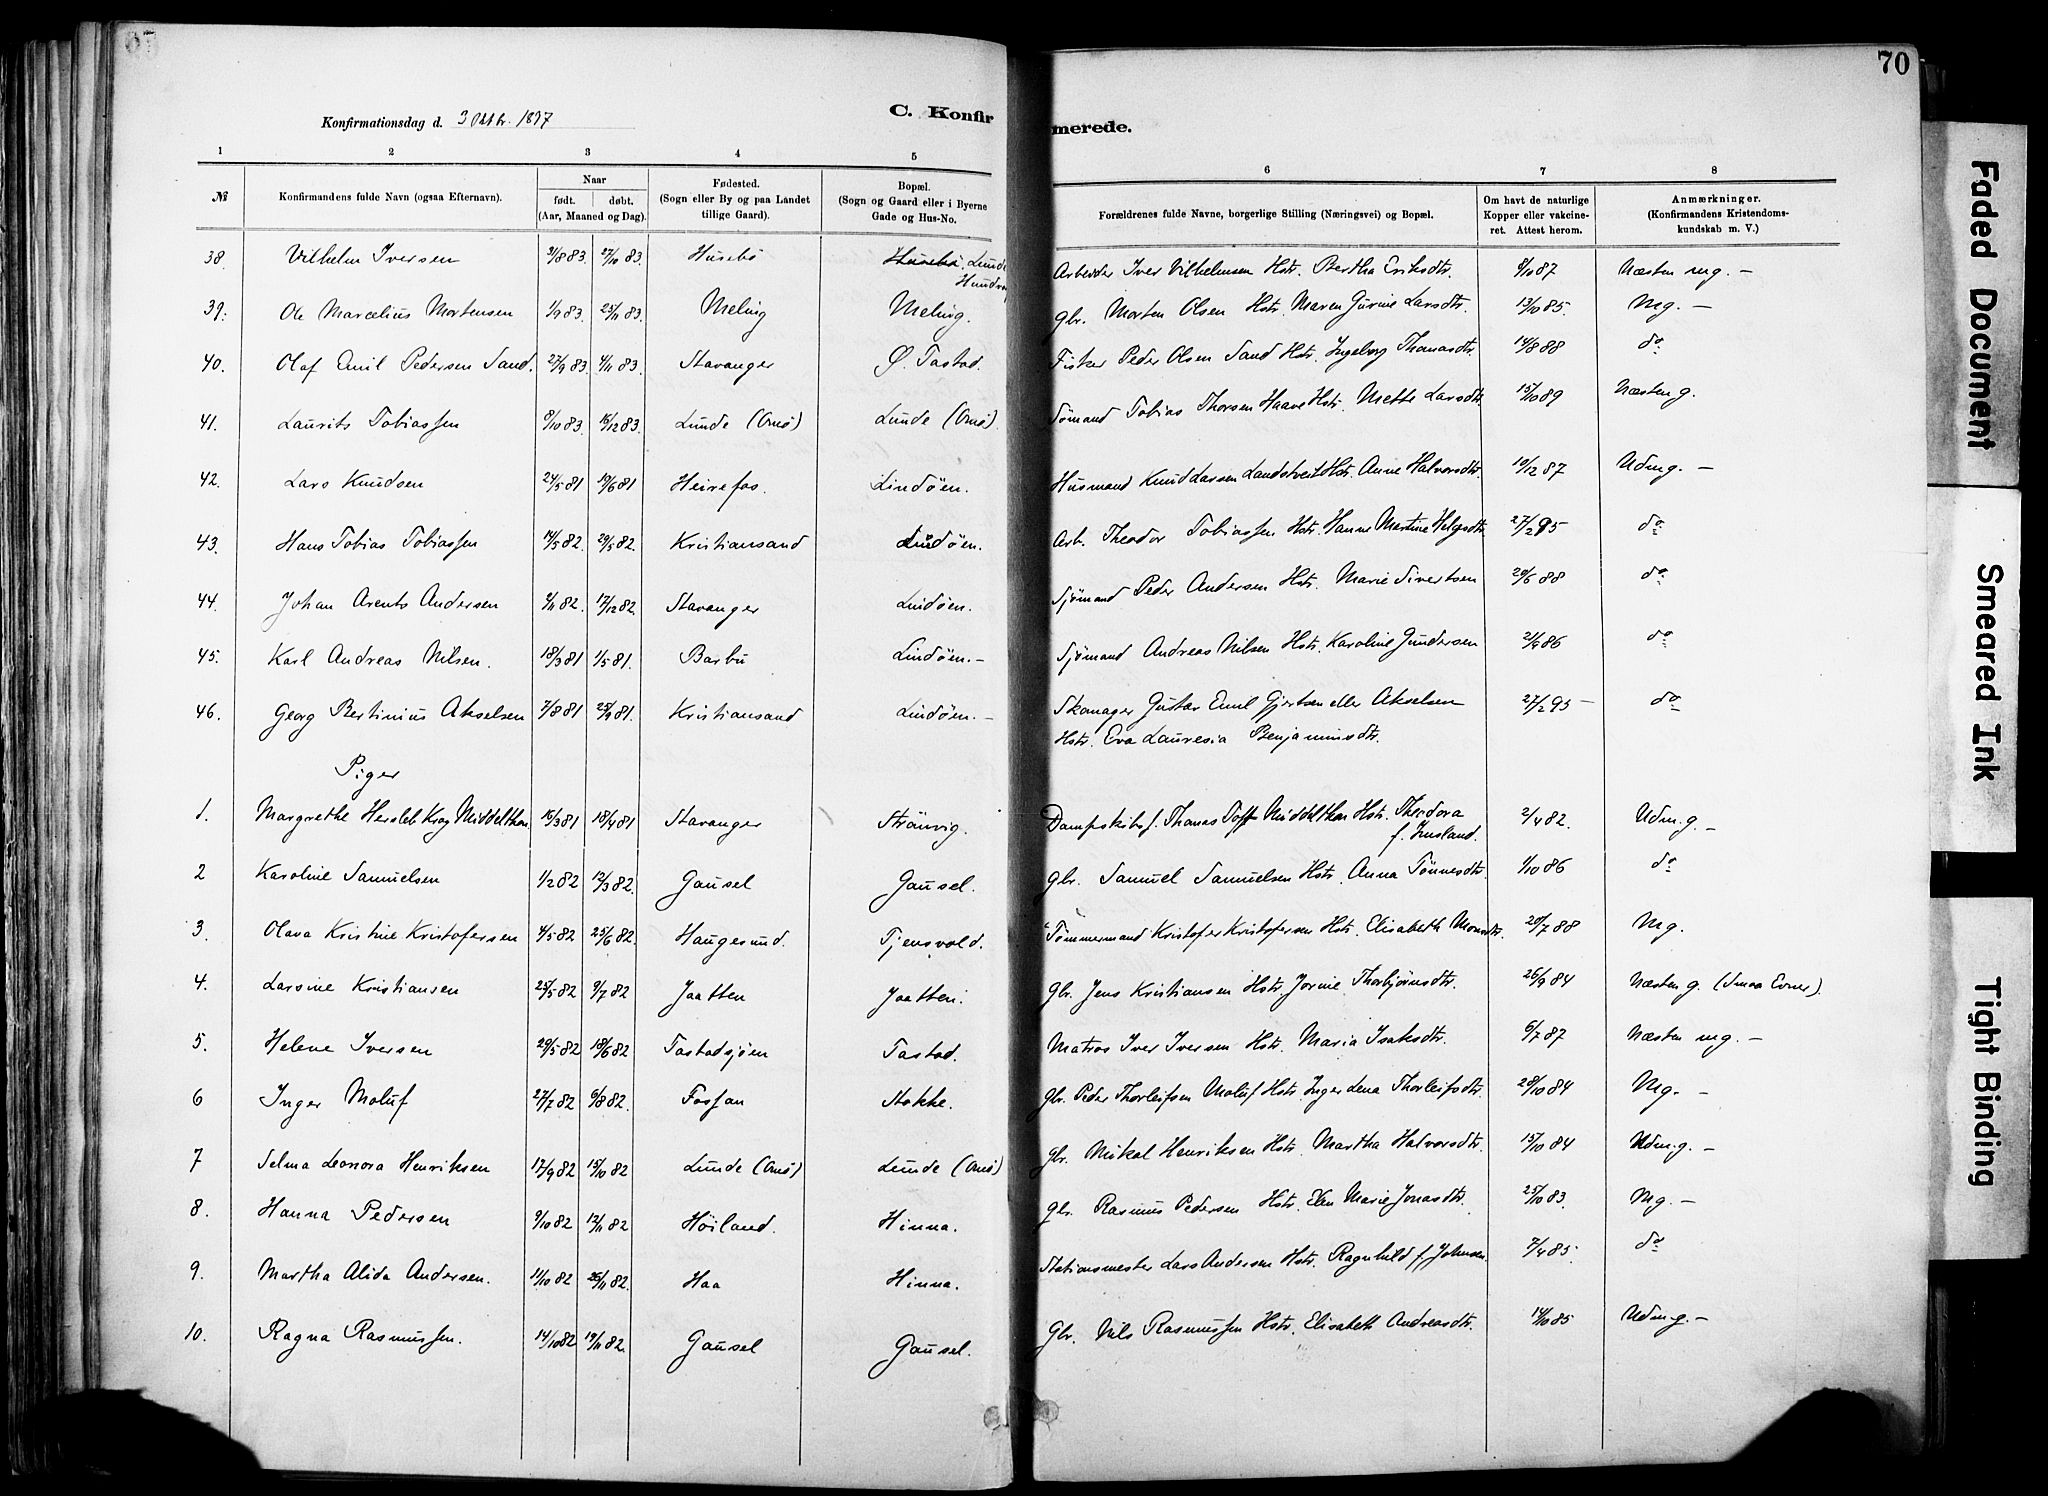 70
Konfirmationsdag d. 3 Oktbr. 1897
C. Konfirmerede.
1 2 3 4 5 6 7 8
№
Konfirmandens fulde Navn (ogsaa Efternavn).
Naar
født. døbt.
(Aar, Maaned og Dag).
Fødested.
(Sogn eller By og paa Landet
tillige Gaard).
Bopæl.
(Sogn og Gaard eller i Byerne
Gade og Hus-No.
Forældrenes fulde Navne, borgerlige Stilling (Næringsvei) og Bopæl.
Om havt de naturlige
Kopper eller vakcine-
ret. Attest herom.
Anmærkninger.
(Konfirmandens Kristendoms-
kundskab m. V.)
38. Vilhelm Iversen 31/8 83. 27/10 83. Husebø Husebø. Lunde Arbeider Iver Vilhelmsen Hstr. Bertha Eriksdtr. 8/10 87 Næsten mg. –
39. Ole Marcelius Mortensen 1/9 83. 25/11 83. Meling Meling. Gbr. Morten Olsen Hstr. Maren Gurine Larsdtr. 13/10 85. Mg. –
40. Olaf Emil Pedersen Sand. 27/9 83. 4/11 83. Stavanger Ø. Tastad. Fisker Peder Olsen Sand Hstr. Ingeborg Thomasdtr. 14/8 88 do
41. Laurits Tobiassen 8/10 83. 16/12 83. Lunde (Omø) Lunde (Omø). Sømand Tobias Thorsen Haave Hstr. Mette Larsdtr. 15/10 89 Næsten g.
42. Lars Knudsen 24/5 81 19/6 81 Heirefos. Lindøen. Husmand Knud Larsen Landstveit Hstr. Anne Halvorsdtr. 10/12 87 Udm g. –
43. Hans Tobias Tobiassen 14/5 82. 29/5 82. Kristiansand Lindøen. Arb. Theodor Tobiassen Hstr. Hanne Martine Helgesdtr. 27/2 95 do
44. Johan Arents Andersen 9/11 82. 17/12 82 Stavanger Lindøen. Sjømand Peder Andersen Hstr. Marie Sivertsen 20/6 88 do
45. Karl Andreas Nilsen. 18/3 81 1/5 81. Barbu Lindøen. – Sjømand Andreas Nilsen Hstr. Karoline Gundersen 21/4 86 do
46. Georg Bertinius Akselsen 7/8 81 25/9 81. Kristiansand Lindøen. – Skomager Gustav Emil Gjertsen eller Akselsen 27/2 95 – do
Hstr. Eva Lauresia Benjaminsdtr.
Piger
1. Margrethe Hersleb Krog Middelthon 16/3 81 18/4 81 Stavanger Strømvig. Dampskibsf. Thomas Middelthon Hstr. Theodora 2/4 82. Udm.g. –
2 Karoline Samuelsen 1/2 82 12/3 82. Gausel Gausel. Gbr. Samuel Samuelsen Hstr. Anna Tønnesdtr. 1/10 86 do
3. Olava Kristine Kristofersen 4/5 82 25/6 82. Haugesund. Tjensvold. Tømmermand Kristofer Kristofersen Hstr. Elisabeth Monsdtr. 20/7 88 Mg.
4. Larsine Kristiansen 25/5 82 9/7 82 Jaatten Jaatten. Gbr. Jens Kristiansen Hstr Jorine Thorbjørnsdtr. 26/9 84 Næsten g. (Smaa Evner).
5. Helene Iversen 29/5 82 18/6 82 Tastadsjøen Tastad. Matros Iver Iversen Hstr. Maria Isaksdtr. 6/7 87 Næsten mg. –
6 Inger Moluf 27/7 82 6/8 82. Fossan Stokke. Gbr. Peder Thorleifsen Moluf Hstr. Inger Lena Thorleifsdtr. 28/10 84 Mg. –
7 Selma Leonora Henriksen 17/9 82 15/10 82 Lunde (Omø) Lunde (Omø) Gbr. Mikal Henriksen Hstr. Martha Halvorsdtr. 15/10 84 Udm.g. –
8. Hanna Pedersen 9/10 82 12/11 82 Høiland. Hinna. Gbr. Rasmus Pedersen Hstr. Elen Marie Jonasdtr. 25/10 83. Mg. –
9. Martha Alida Andersen. 11/10 82 26/11 82. Haa Hinna. Stationsmester Lars Andersen Hstr. Ragnhild f. Johnsen. 7/4 85. do
10. Ragna Rasmussen. 14/10 82 19/11 82. Gausel Gausel. Gbr. Nils Rasmussen Hstr. Elisabeth Andreasdtr. 14/10 85 Udm g. –
Faded Document
Smeared Ink
Tight Binding